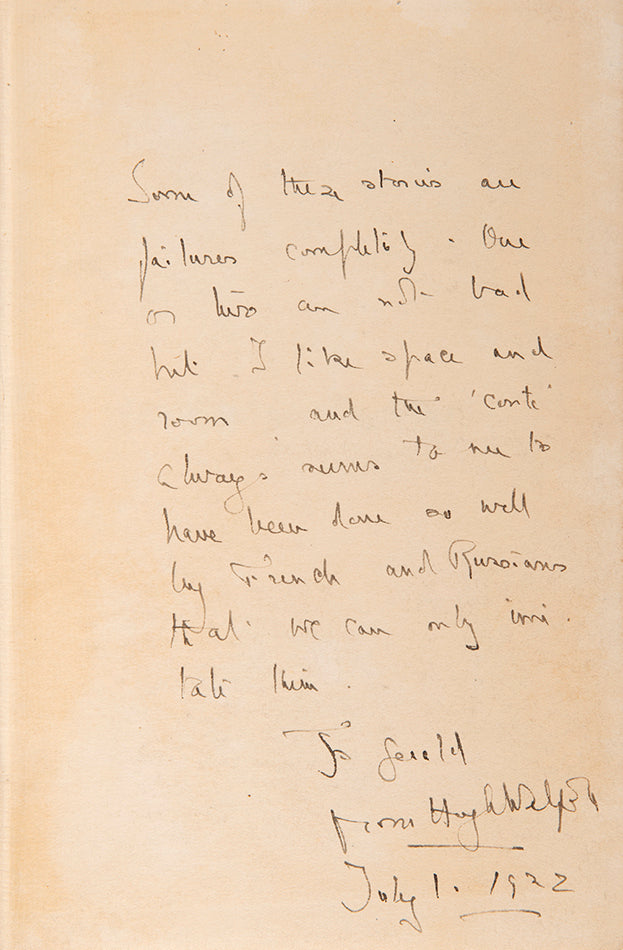 Some of these stories are
failures completely. One
or two are not bad
but I like space and
room and the 'conte'
always seems to me to
have been done so well
by French and Russians
that we can only imi-
tate them.
To Gerald
from Hugh Walpole
July 1. 1922